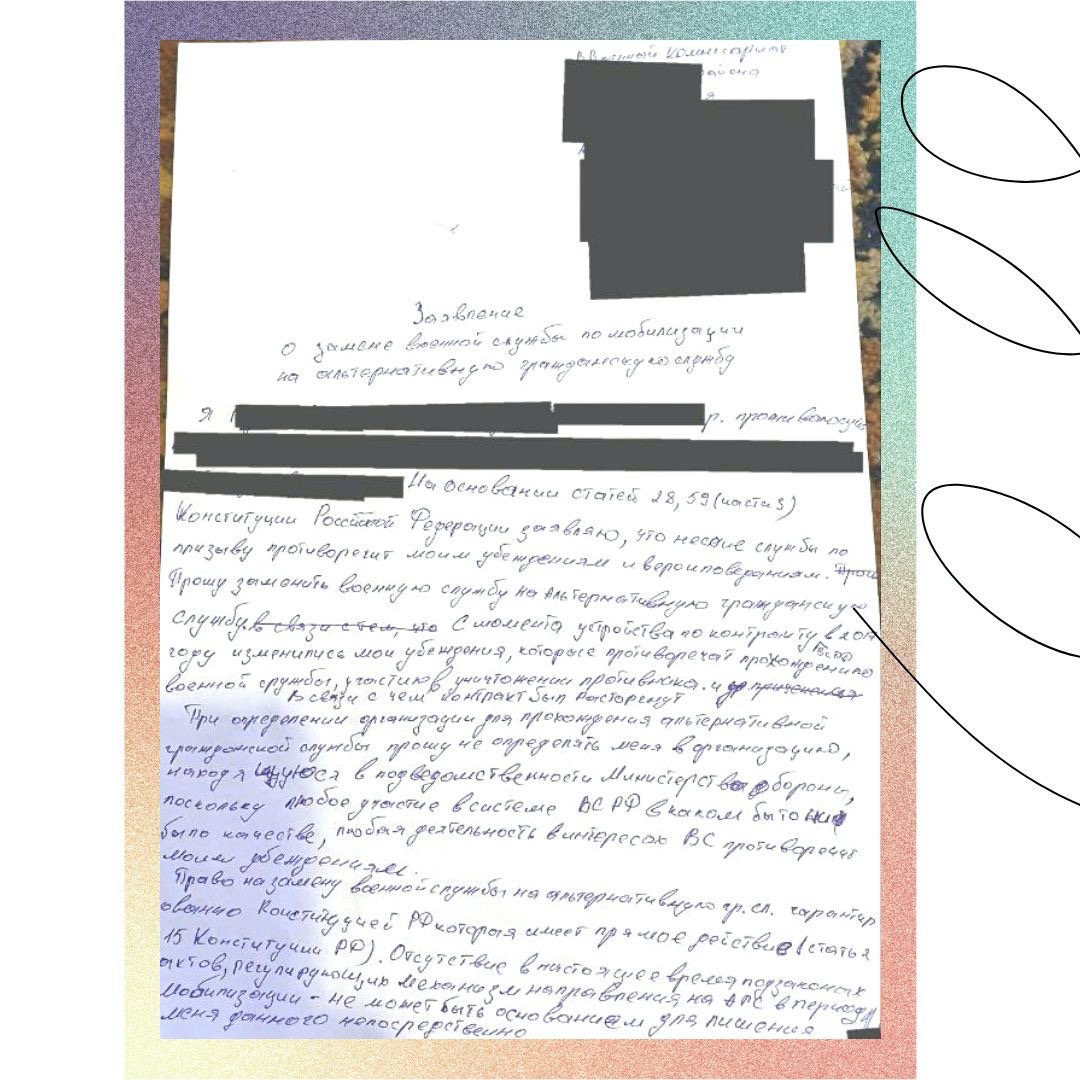 В Военный Комиссариат
района
я
Заявление
о замене военной службы по мобилизации
на альтернативную гражданскую службу
Я р. проживающий
На основании статей 28, 59 (часть 3)
Конституции Российской Федерации заявляю, что несение службы по
призыву противоречит моим убеждениям и вероисповеданиям.
Прошу заменить военную службу на Альтернативную гражданскую
службу. в связи с тем, что С момента устройства по контракту в ВСРФ в
году изменились мои убеждения, которые противоречат прохождению
военной службы, участию в уничтожении противника. и
В связи с чем контракт был расторгнут
При определении организации для прохождения альтернативной
гражданской службы прошу не определять меня в организацию,
находящуюся в подведомственности Министерства обороны,
поскольку любое участие в системе ВС РФ в каком бы то ни
было качестве, любая деятельность в интересах ВС противоречат
моим убеждениям.
Право на замену военной службы на альтернативную гр. сл. гарантир
ованно Конституцией РФ которая имеет прямое действие (статья
15 Конституции РФ). Отсутствие в настоящее время подзаконых
актов, регулирующих механизм направления на АГС в период
мобилизации - не может быть основанием для лишения
меня данного непосредственно